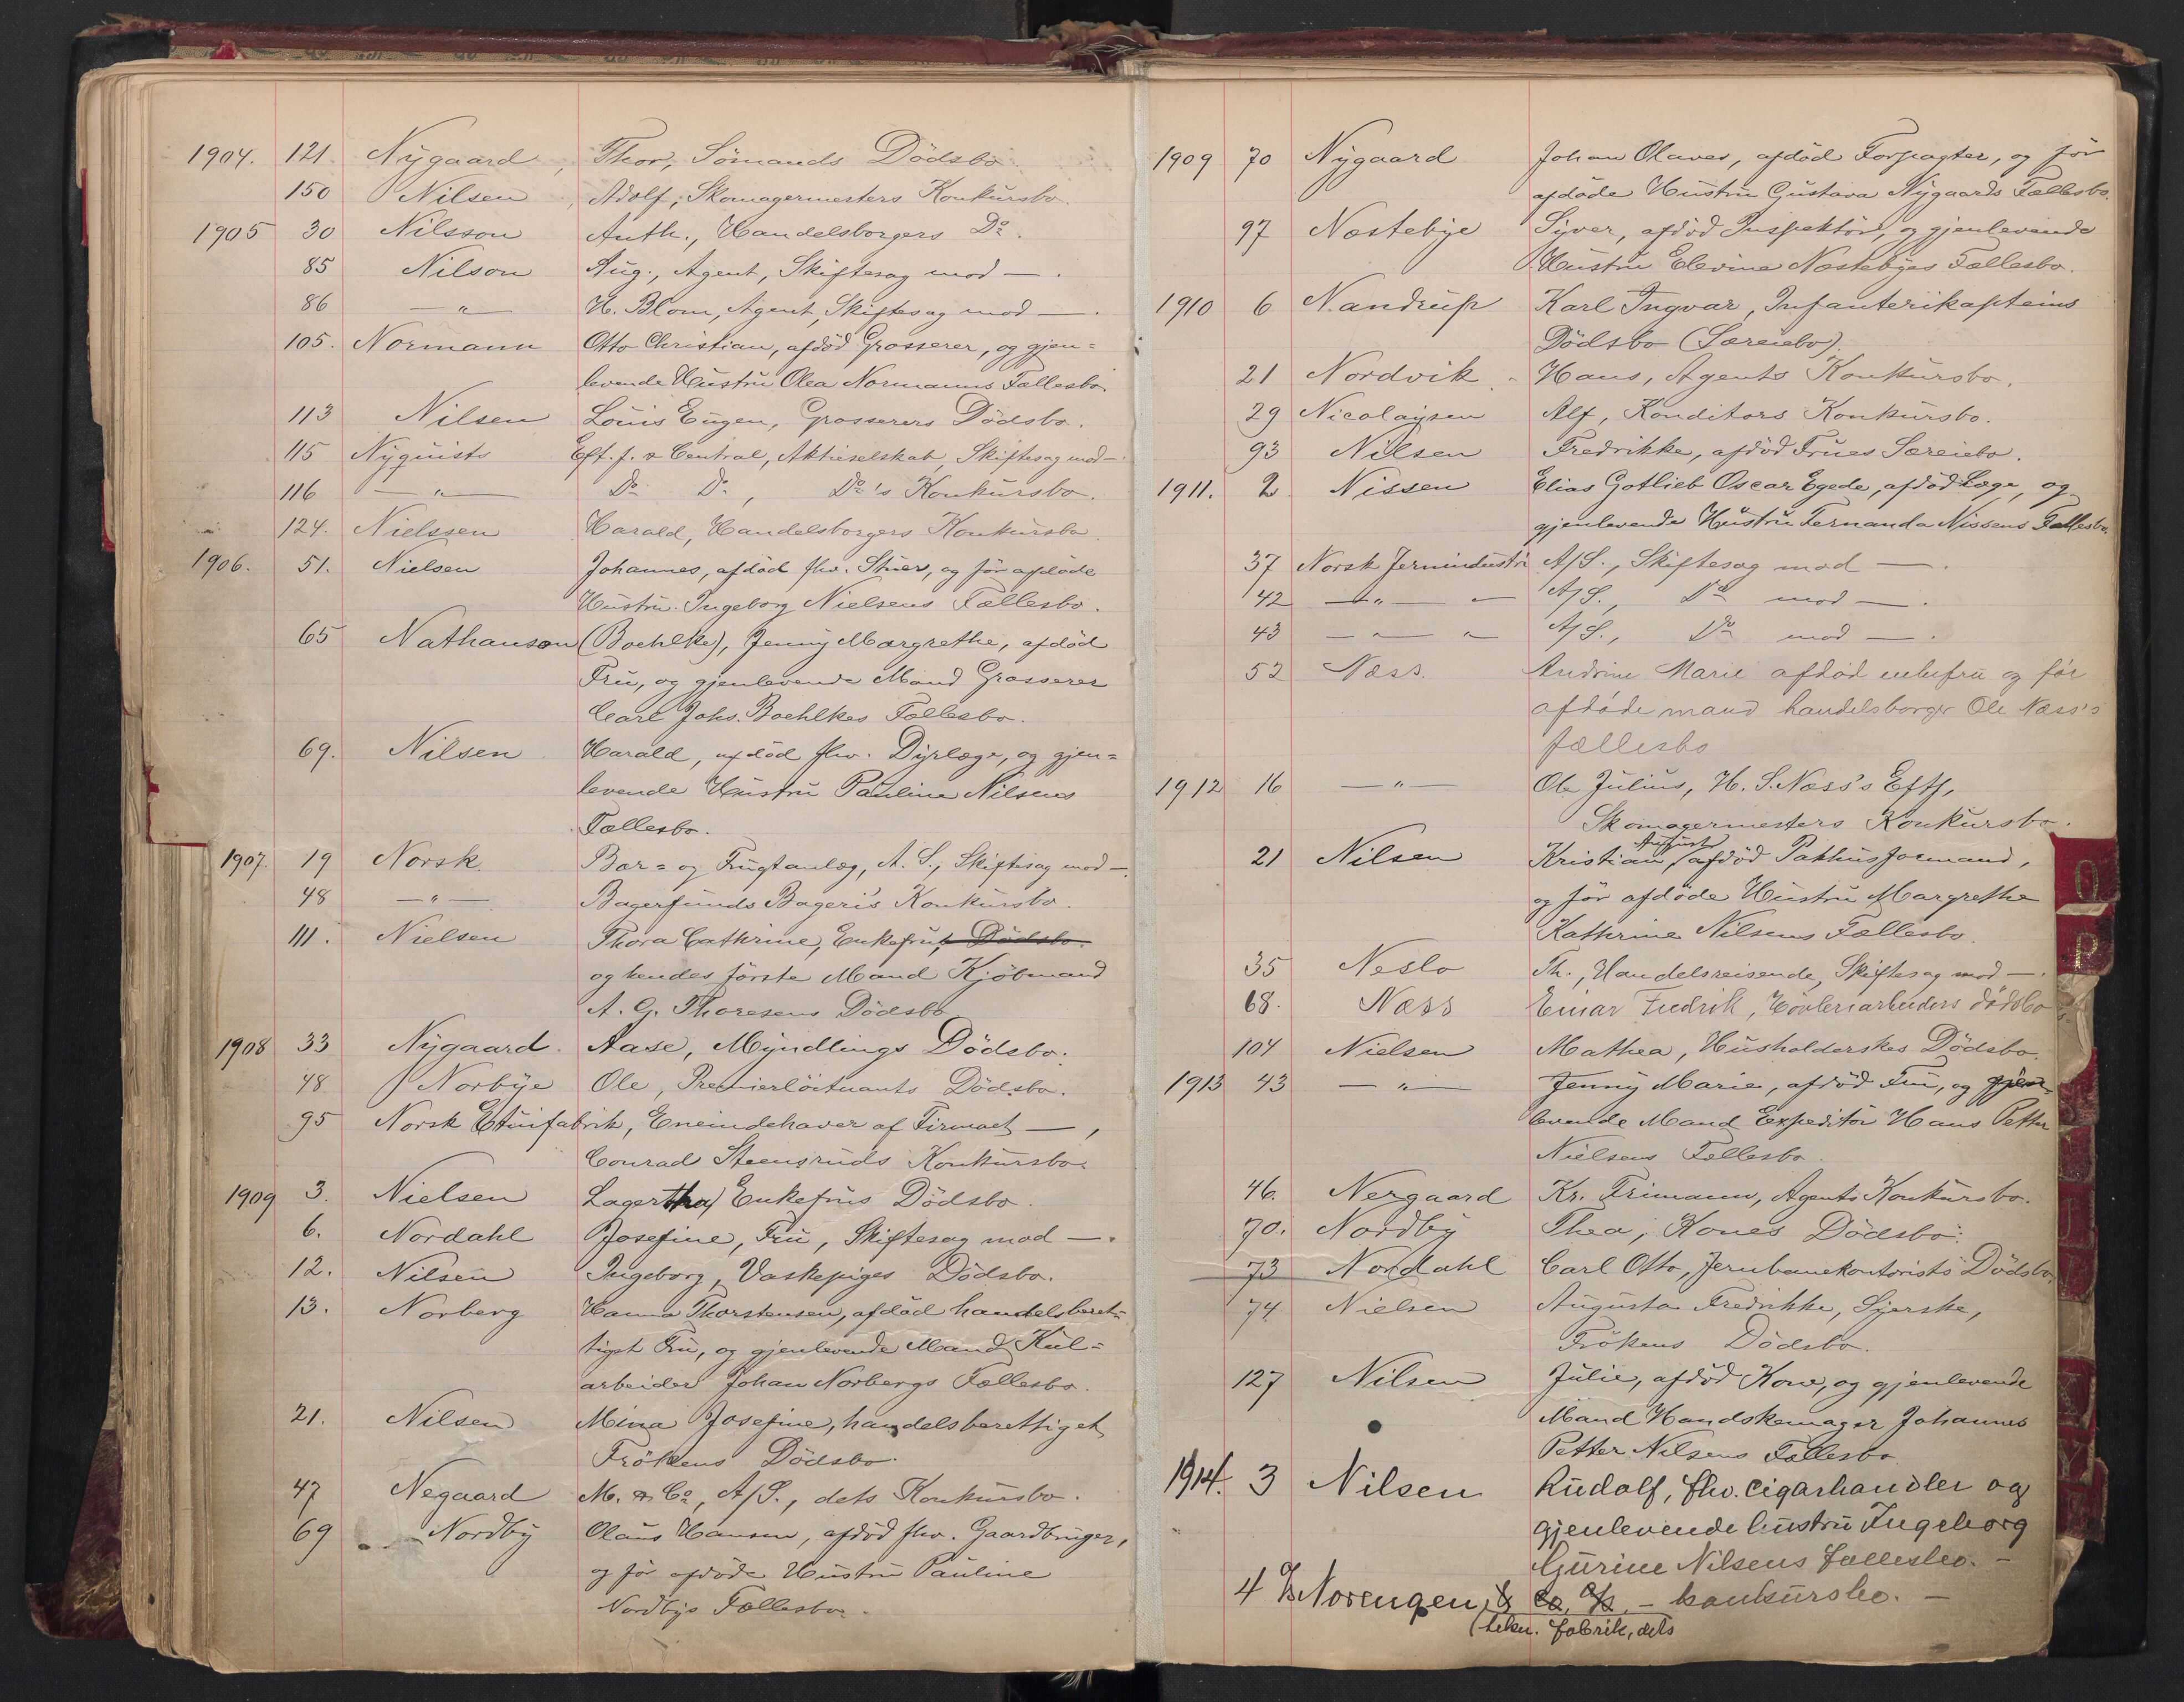 1904. 121 Nygaard, Thor, Sömands Dödsbo
150 Nilsen, Adolf, Skomagermesters Konkursbo.
1905 30 Nilsson Anth., Handelsborgers Do.
85 Nilson Aug., Agent, Skiftesag mod —.
86 — " — H. Blom, Agent, Skiftesag mod —.
105. Normann Otto Christian, afdöd Grosserer, og gjen=
levende Hustru Olea Normanns Fællesbo.
113 Nilsen Louis Eugen, Grosserers Dödsbo.
115 Nyquists Eft. f. & Central, Aktieselskab, Skiftesag mod —
116 — " — Do Do, Do's Konkursbo.
124. Nielssen Harald, Handelsborgers Konkursbo
1906. 51. Nielsen Johannes, afdöd fhv. Stuer, og för afdöde
Hustru Ingeborg Nielsens Fællesbo.
65 Nathanson (Boehlke), Jenny Margrethe, afdöd
Fru, og gjenlevende Mand Grosserer
Carl Johs. Boehlkes Fællesbo.
69. Nilsen Harald, afdöd fhv. Dyrlæge, og gjen=
levende Hustru Pauline Nilsens
Fællesbo.
1907. 19 Norsk Bær= og Frugtanlæg, A. S., Skiftesag mod —.
48 — " — Bagerfunds Bageri's Konkursbo.
111. Nielsen Thora Cathrine, Enkefru, Dödsbo.
og hendes förste Mand Kjöbmand
A. G. Thoresens Dödsbo
1908 33 Nygaard. Aase, Myndlings Dödsbo.
48 Norbye Ole, Premierlöitnants Dödsbo.
95 Norsk Etuifabrik, Eneindehaver af Firmaet —,
Conrad Steensruds Konkursbo.
1909 3. Nielsen Lagertha, Enkefrus Dödsbo.
6. Nordahl Josefine, Fru, Skiftesag mod —.
12. Nilsen Ingeborg, Vaskepiges Dödsbo.
13. Norberg Hanna Thorstensen, afdöd handelsberet=
tiget Fru, og gjenlevende Mand Kul=
arbeider Johan Norbergs Fællesbo.
21. Nilsen Mina Josefine, handelsberettiget
Frökens Dödsbo.
47 Negaard M. & Co, A/S., dets Konkursbo.
69 Nordby Olaus Hansen, afdöd fhv. Gaardbruger,
og för afdöde Hustru Pauline
Nordbys Fællesbo.
1909 70 Nygaard Johan Olaves, afdöd Forpagter, og för
afdöde Hustru Gustava Nygaards Fællesbo.
97 Næstebye Syver, afdöd Inspektör, og gjenlevende
Hustru Elevine Næstebyes Fællesbo.
1910 6 Nandrup Karl Ingvar, Infanterikapteins
Dödsbo (Særeiebo).
21 Nordvik Hans, Agents Konkursbo.
29 Nicolaysen Alf, Konditors Konkursbo.
93 Nilsen Fredrikke, afdöd Frues Særeiebo.
1911. 2 Nissen Elias Gotlieb Oscar Egede, afdöd Læge, og
gjenlevende Hustru Fernanda Nissens Fællesbo.
37 Norsk Jernindustri A/S., Skiftesag mod —.
42 — " — " A/S., Do mod —.
43 — " — " A/S., Do mod —.
52 Næss. Andrine Marie afdød enkefru og før
afdøde mand handelsborger Ole Næss's
fællesbo
1912 16 — " — Ole Julius, H. S. Næss's Eftf,
Skomagermesters Konkursbo.
21 Nilsen Kristian August, afdöd Pakhusformand,
og för afdöde Hustru Margrethe
Kathrine Nilsens Fællesbo.
35 Neslo Th., Handelsreisende, Skiftesag mod —.
68. Næss Einar Fredrik, Høvleriarbeiders dødsbo
104 Nielsen Mathea, Husholderskes Dödsbo.
1913 43 — " — Jenny Marie, afdöd Fru, og gjen=
levende Mand Expeditör Hans Petter
Nielsens Fællesbo.
46. Nergaard Kr. Frimann, Agents Konkursbo.
70. Nordby Thea, Kones Dödsbo.
73 Nordahl Carl Otto, Jernbanekontorists Dödsbo.
74 Nielsen Augusta Fredrikke, Syerske,
Frökens Dödsbo.
127 Nilsen Julie, afdöd Kone, og gjenlevende
Mand Handskemager Johannes
Petter Nilsens Fællesbo.
1914. 3 Nilsen Rudolf, fhv. cigarhandler og
gjenlevende hustru Ingeborg
Gurine Nilsens fællesbo. —
4 A/S Norengen, & Co, A/S, — konkursbo. —
(tekn. fabrik, dets
O
P